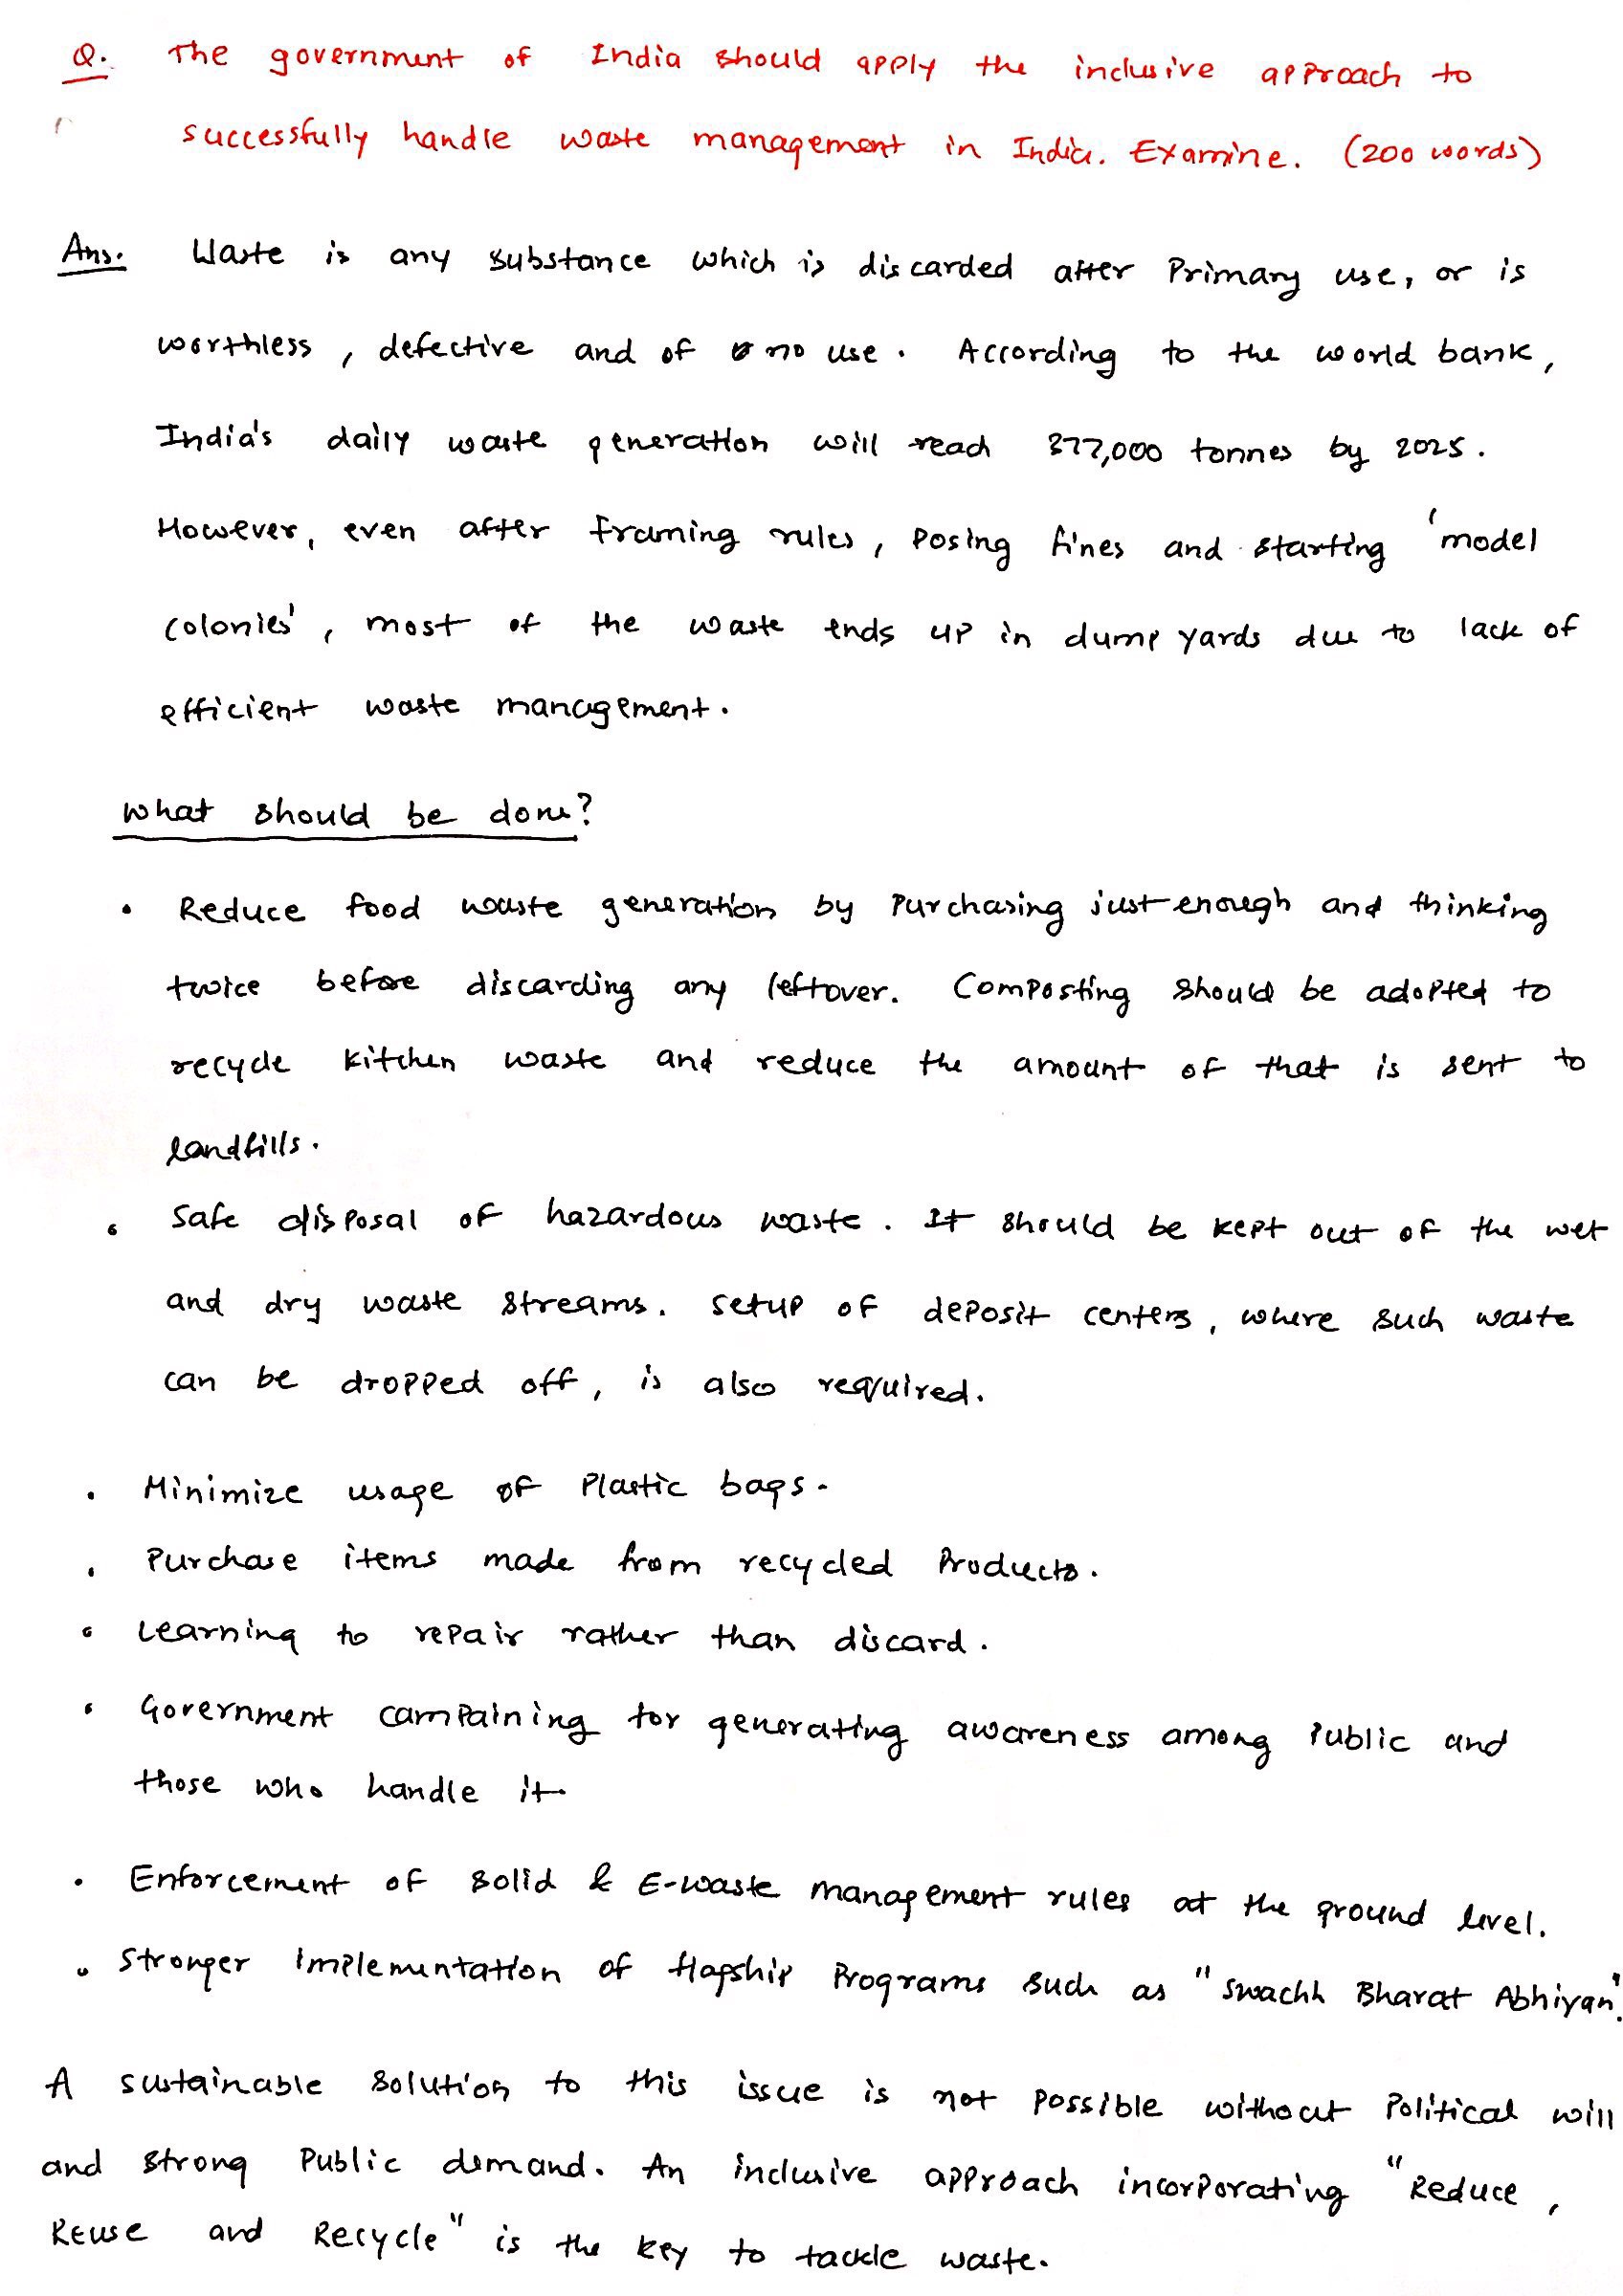 Q. The government of India should apply the inclusive approach to
successfully handle waste management in India. Examine. (200 words)
Ans. Waste is any substance which is discarded after Primary use, or is
worthless, defective and of no use. According to the world bank,
India's daily waste generation will reach 377,000 tonnes by 2025.
However, even after framing rules, posing fines and starting 'model
colonies', most of the waste ends up in dump yards due to lack of
efficient waste management.
What should be done?
• Reduce food waste generation by purchasing just enough and thinking
twice before discarding any leftover. Composting should be adopted to
recycle kitchen waste and reduce the amount of that is sent to
landfills.
• Safe disposal of hazardous waste. It should be kept out of the wet
and dry waste streams. setup of deposit centers, where such waste
can be dropped off, is also required.
• Minimize usage of Plastic bags.
• Purchase items made from recycled Products.
• Learning to repair rather than discard.
• Government campaining for generating awareness among Public and
those who handle it
• Enforcement of solid & E-waste management rules at the ground level.
• Stronger implementation of flagship Programs such as "Swachh Bharat Abhiyan".
A sustainable solution to this issue is not possible without Political will
and strong Public demand. An inclusive approach incorporating "Reduce,
Reuse and Recycle" is the key to tackle waste.